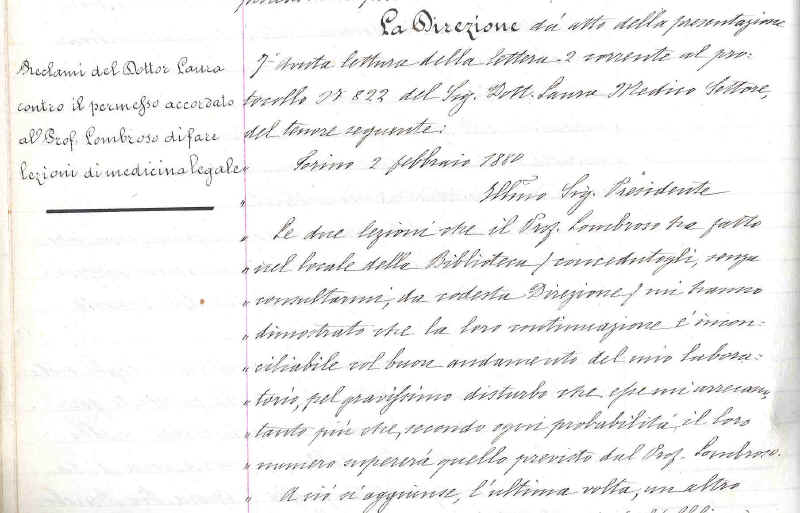 Reclami del Dottor Laura
contro il permesso accordato
al Prof. Lombroso di fare
lezioni di medicina legale
La Direzione dà atto della presentazione
data lettura della lettera 2 corrente al pro-
tocollo N° 822 del Sig. Dott. Laura Medico Settore,
del tenore seguente:
" Torino 2 febbraio 1880
" Illmo Sig. Presidente
" Le due lezioni che il Prof. Lombroso ha fatto
" nel locale della Biblioteca / concedutogli, senza
" consultarmi, da codesta Direzione / mi hanno
" dimostrato che la loro continuazione è incon-
" ciliabile col buon andamento del mio labora-
" torio, pel gravissimo disturbo che esse mi arrecan,
" tanto più che, secondo ogni probabilità, il loro
" numero supererà quello previsto dal Prof. Lombroso.
" A ciò si aggiunse, l'ultima volta, un altro